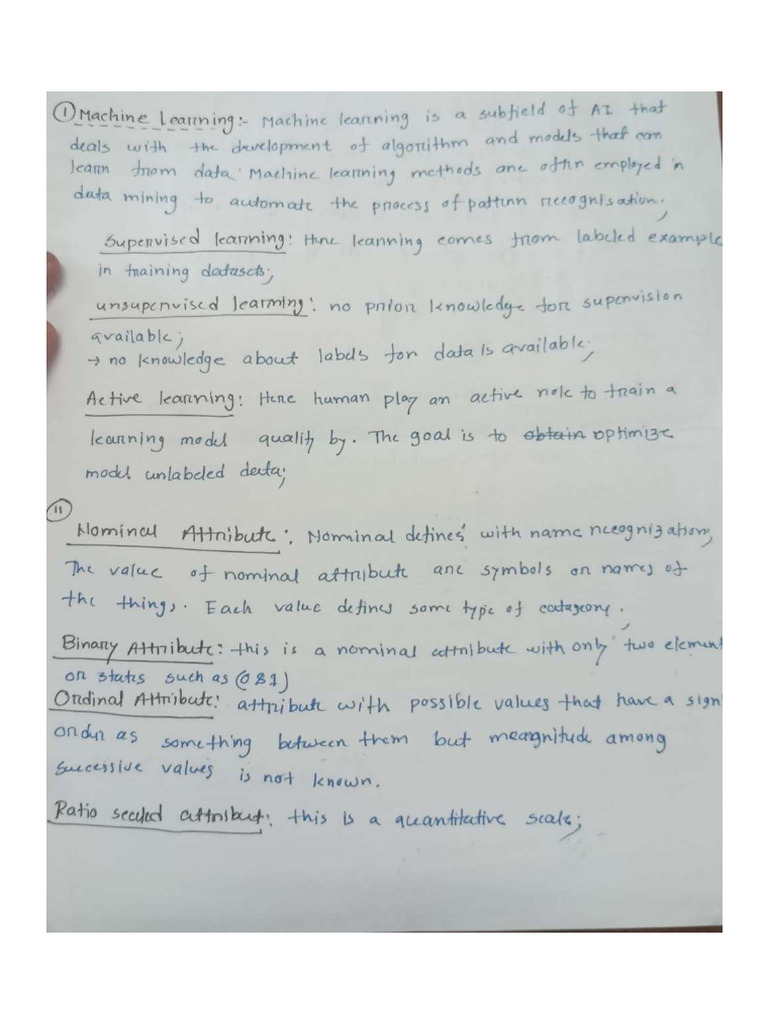 ① Machine Learning:- Machine learning is a subfield of AI that
deals with the development of algorithm and models that can
learn from data. Machine learning methods are often employed in
data mining to automate the process of pattern recognisation;
Supervised learning: Here learning comes from labeled example
in training datasets;
unsupervised learning: no prior knowledge for supervision
available;
→ no knowledge about labels for data is available;
Active learning: Here human play an active role to train a
learning model quality by. The goal is to obtain optimize
model unlabeled data;
11
Nominal Attribute: Nominal defines with name recognization;
The value of nominal attribute are symbols or names of
the things. Each value defines some type of catageory.
Binary Attribute: this is a nominal attribute with only two element
or states such as (0 & 1)
Ordinal Attribute: attribute with possible values that have a sign
order as something between them but meangnitude among
successive values is not known.
Ratio scaled attribut: this is a quantitative scale;